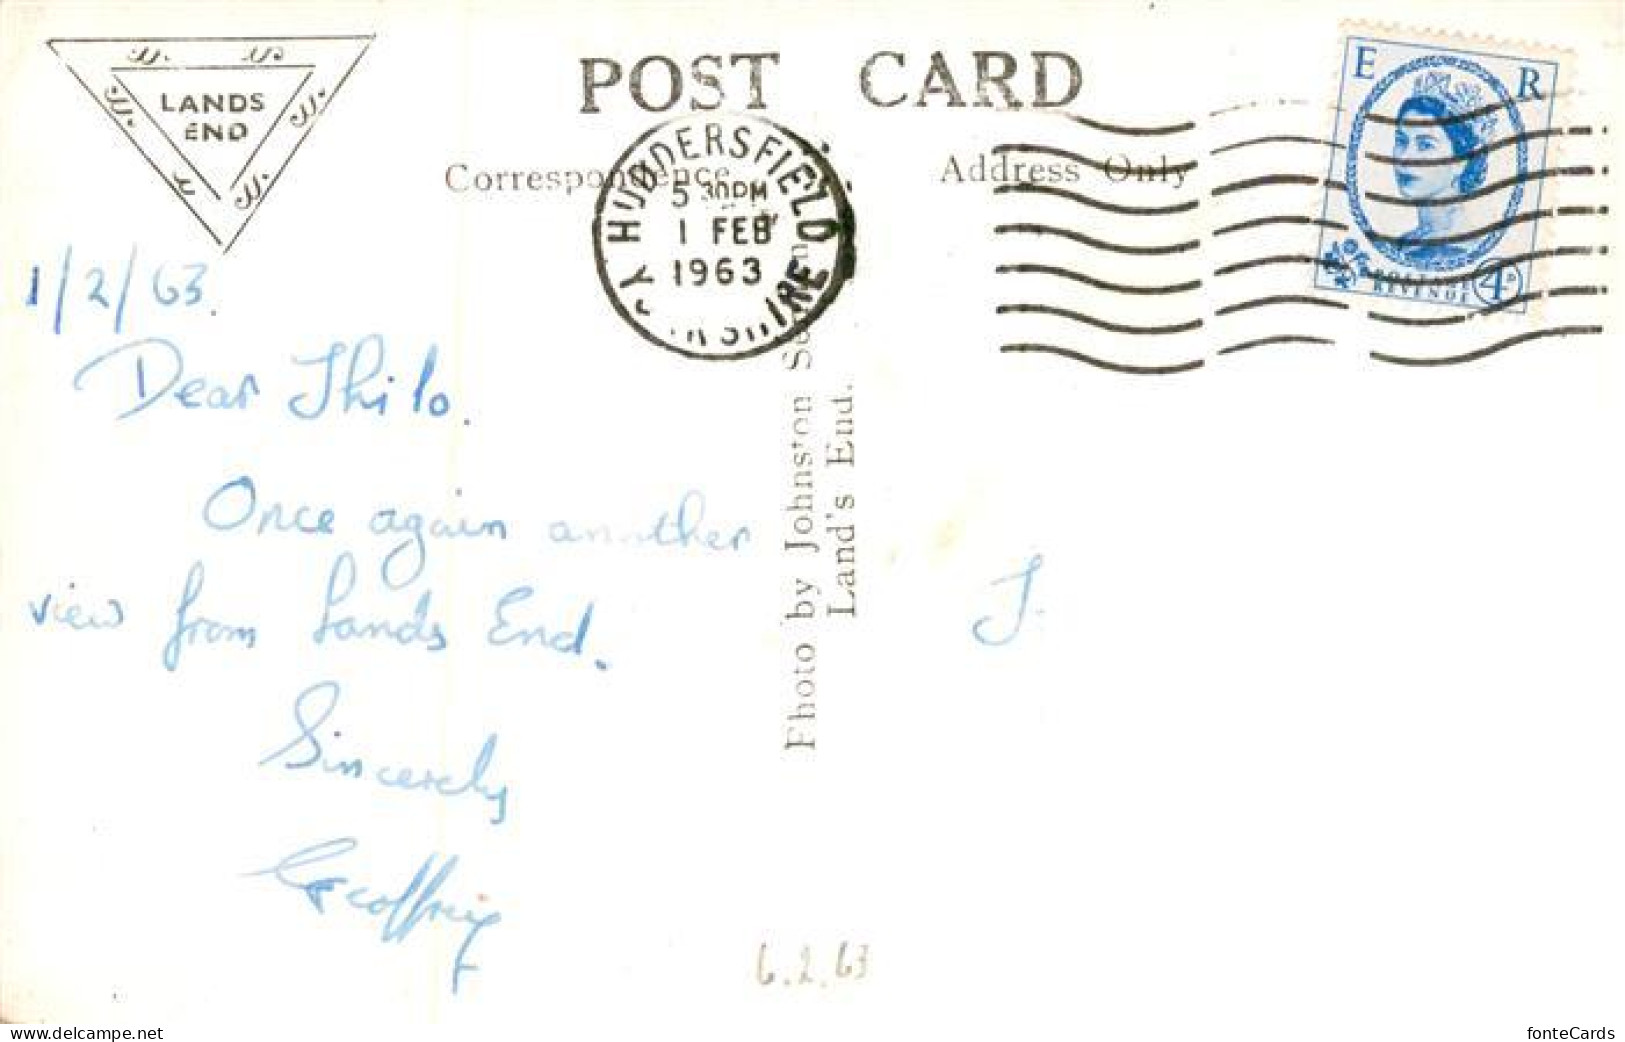 LANDS
END
POST CARD
Correspondence
Address Only
HUDDERSFIELD
5 30PM
1 FEB
1963
YORKSHIRE
E R
POSTAGE
REVENUE
4D
1/2/63.
Dear Thilo.
Once again another
view from Lands End.
Sincerely
Geoffrey
Photo by Johnston
Land's End.
T.
6.2.63
www.delcampe.net
fonteCards